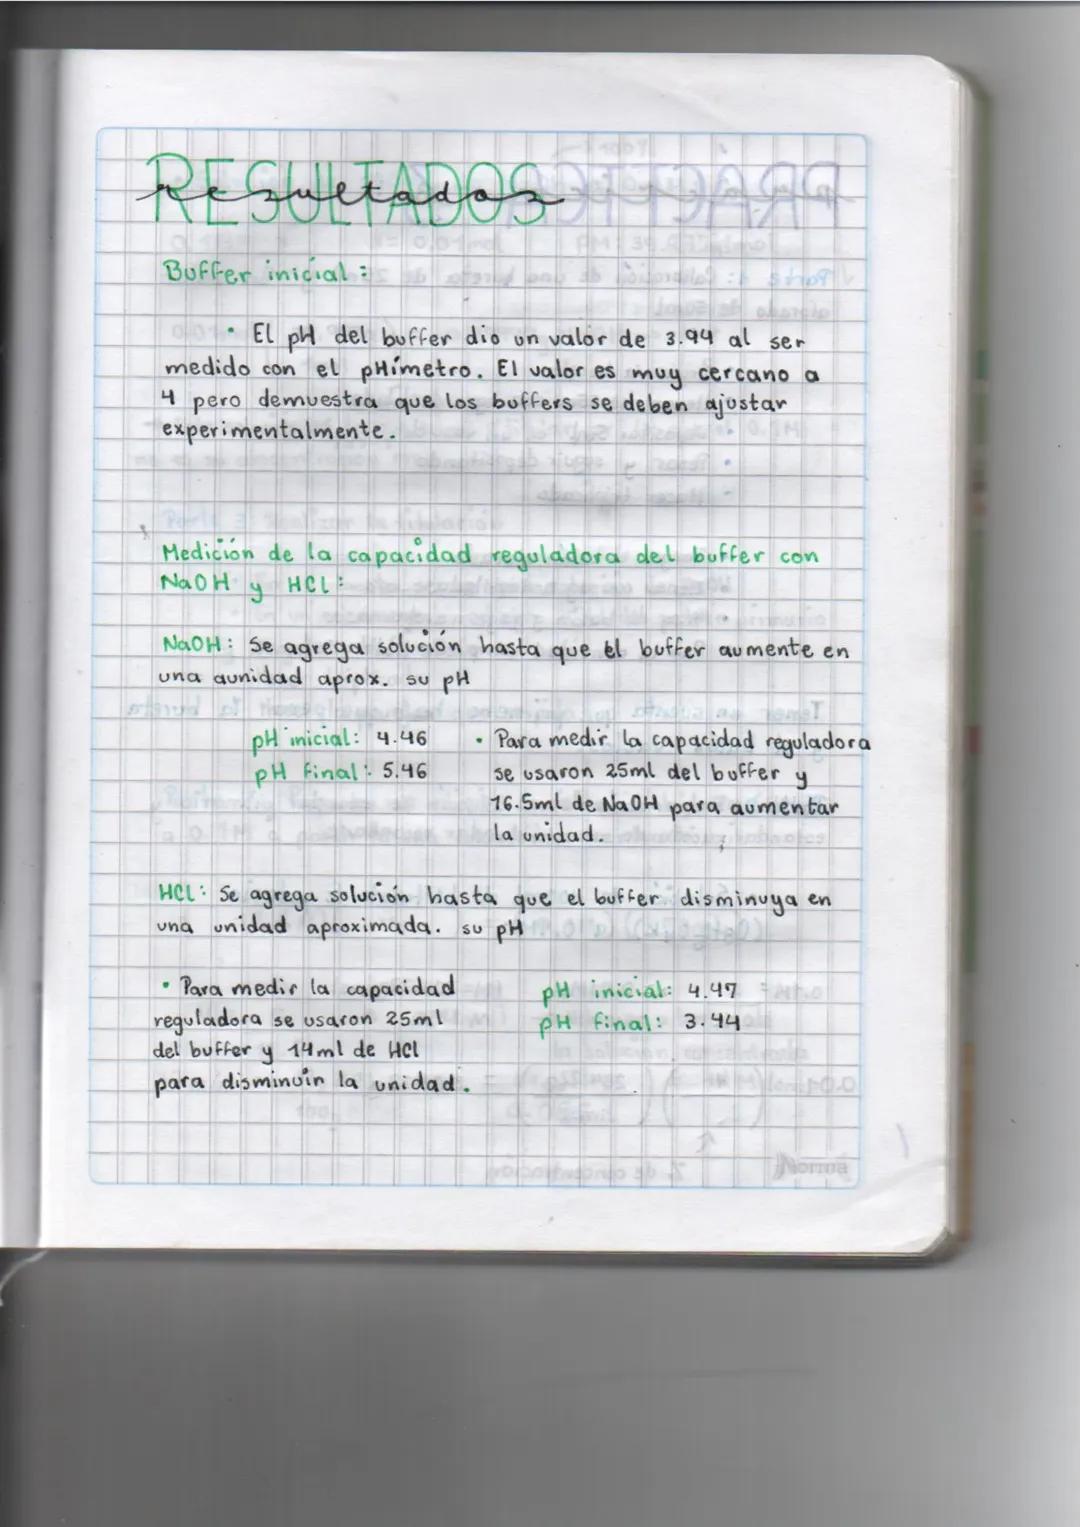 RESULTADOS
resultados
Buffer inicial:
• El pH del buffer dio un valor de 3.94 al ser
medido con el pHímetro. El valor es muy cercano a
4 pero demuestra que los buffers se deben ajustar
experimentalmente.
Medición de la capacidad reguladora del buffer con
NaOH y HCl:
NaOH: Se agrega solución hasta que el buffer aumente en
una aunidad aprox. su pH
pH inicial: 4.46
pH final: 5.46
• Para medir la capacidad reguladora
se usaron 25ml del buffer y
16.5ml de NaOH para aumentar
la unidad.
HCl: Se agrega solución hasta que el buffer disminuya en
una unidad aproximada. su pH
• Para medir la capacidad
reguladora se usaron 25ml
del buffer y 14ml de HCl
para disminuin la unidad.
pH inicial: 4.47
pH final: 3.44
Norma